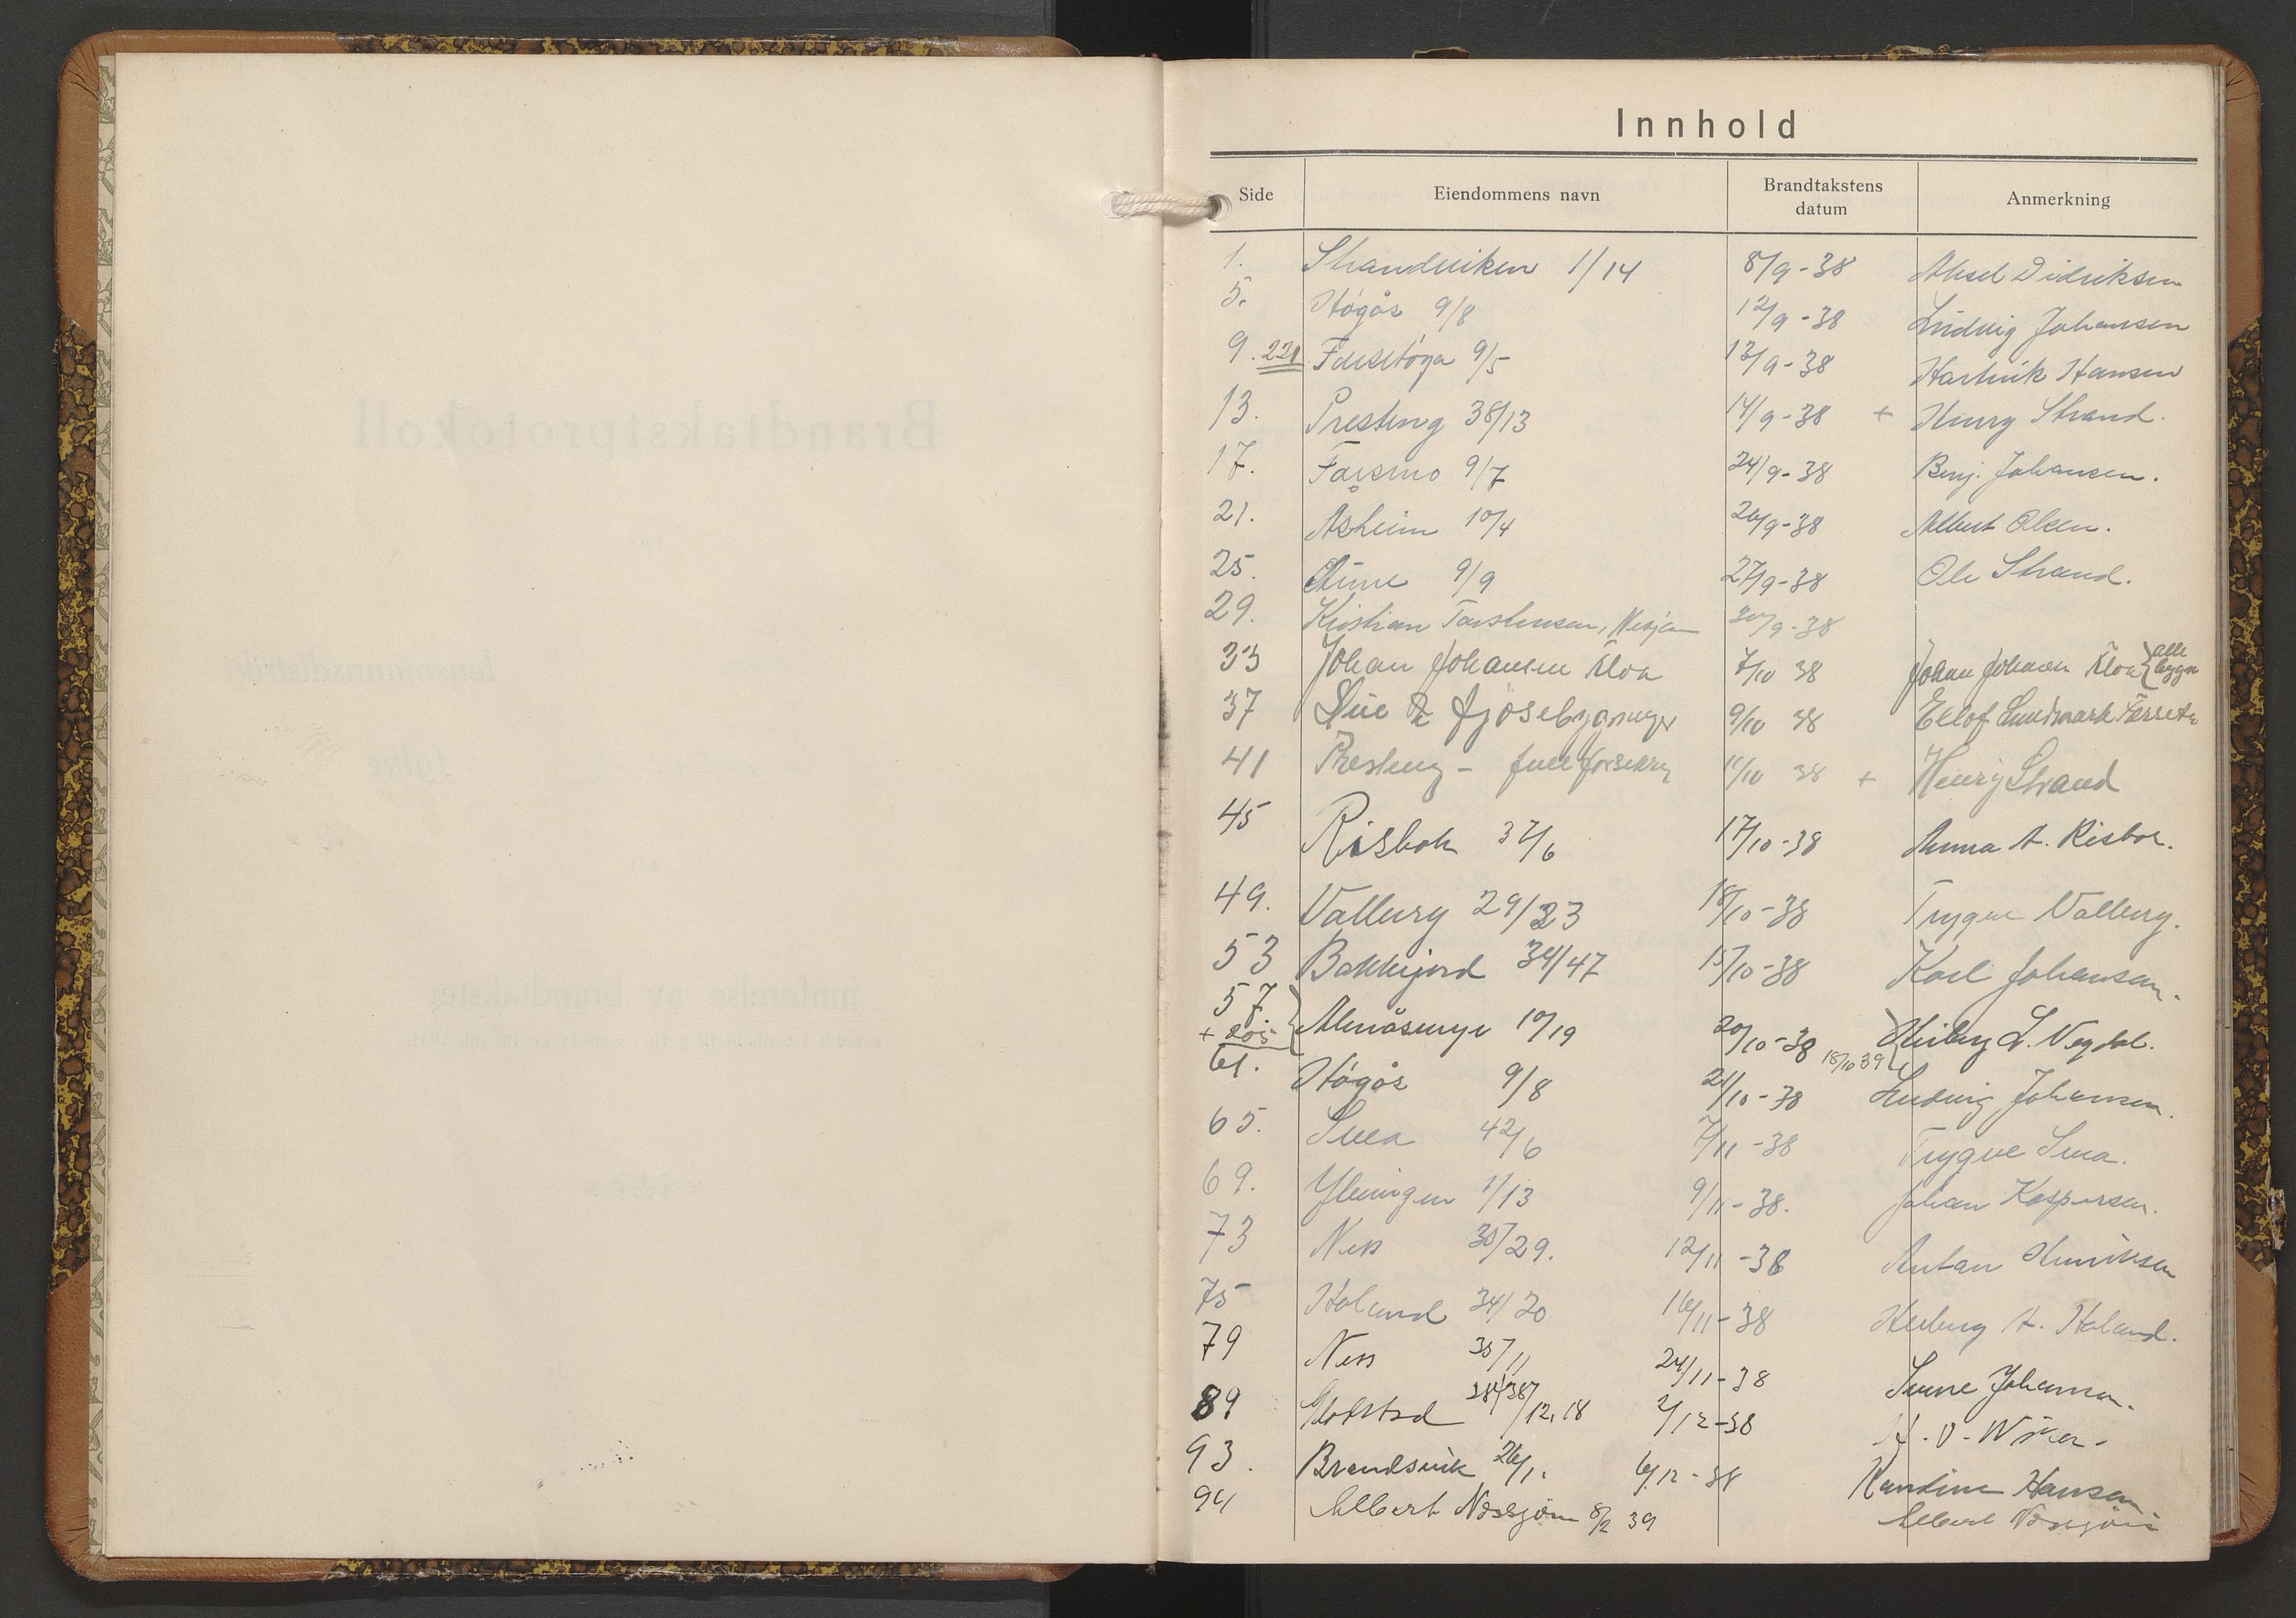 Innhold
Side Eiendommens navn Brandtakstens datum Anmerkning
1. Strandviken 1/14 8/9-38 Aksel Didriksen
5. Høgås 9/8 12/9-38 Ludvig Johansen
9. 221 9/5 13/9-38 Hartvik Hansen
13. Presteng 38/13 14/9-38 + Henry Strand.
17. Farsmo 9/7 24/9-38 Benj. Johansen.
21. Åsheim 10/4 26/9-38 Albert Olsen.
25. 9/9 27/9-38 Ole Strand.
29. Kristian Torstensen, 30/9-38
33 Johan Johansen Kloa 7/10 38 Johan Johansen Kloa } alle bygn
37 Fjøsebygninger 9/10 38 Ellof Lundmark
41 Presteng - full forsikring 11/10 38 + Henry Strand
45 Risbok 37/6 17/10-38 Anna A. Risbok.
49. Valberg 29/23 18/10-38 Trygve Valberg.
53 Bakkejord 34/47 15/10-38 Karl Johansen.
57 + 205 } Almåsenget 10/19 20/10-38 18/10 39 } L. Vegdal.
61. Høgås 9/8 21/10-38 Ludvig Johansen.
65. Svea 42/6 7/11-38 Trygve Svea.
69. Ylvingen 1/13 9/11-38. Johan Kaspersen.
73 Ness 35/29. 12/11-38 Anton Henriksen
75 Holand 34/20 16/11-38 Herborg A. Holand.
79 Ness 35/11 24/11-38 Sverre Johansen.
89 38/12, 18 2/12-38
93. Brandsvik 26/1. 6/12-38 Kandine Hansen
94 Albert Nossjøen 8/2 39 Albert Nossjøen
Brandtakstprotokoll
lensmannsdistrikt
fylke
innførelse av brandtakster